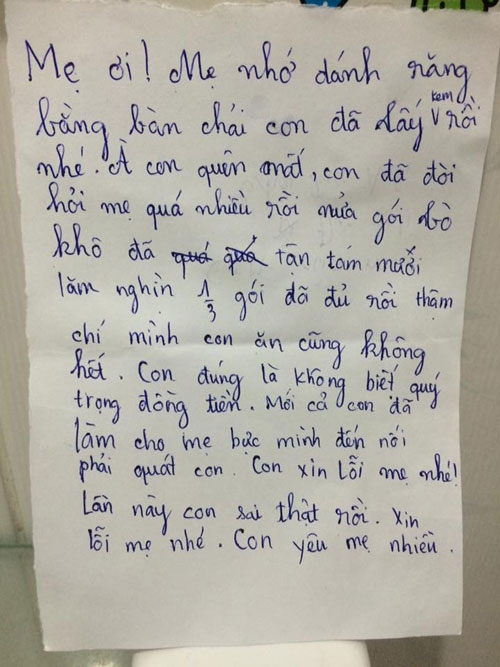 Mẹ ơi! Mẹ nhớ dánh răng
bằng bàn chải con đã lấy kem rồi
nhé. À con quên mất, con đã đòi
hỏi mẹ quá nhiều rồi nửa gói bò
khô đã quá quá tận tám mươi
lăm nghìn 1/3 gói đã đủ rồi thậm
chí mình con ăn cũng không
hết. Con đúng là không biết quý
trọng đồng tiền. Mới cả con đã
làm cho mẹ bực mình đến nỗi
phải quát con. Con xin lỗi mẹ nhé!
Lần này con sai thật rồi. Xin
lỗi mẹ nhé. Con yêu mẹ nhiều.